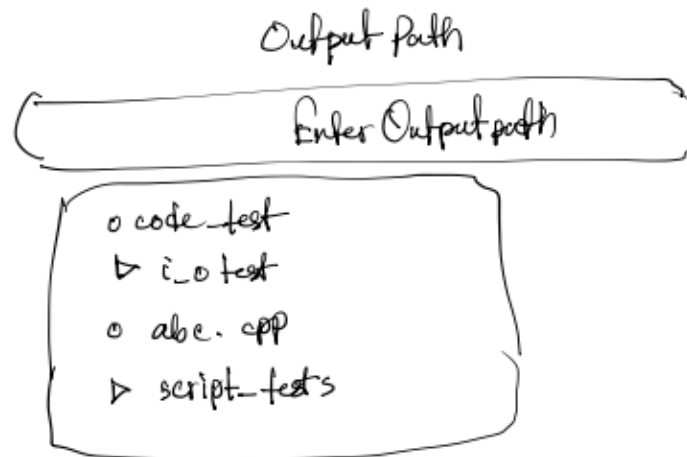 Output Path
Enter Output path
o code_test
▷ i_o test
o abc.cpp
▷ script_tests